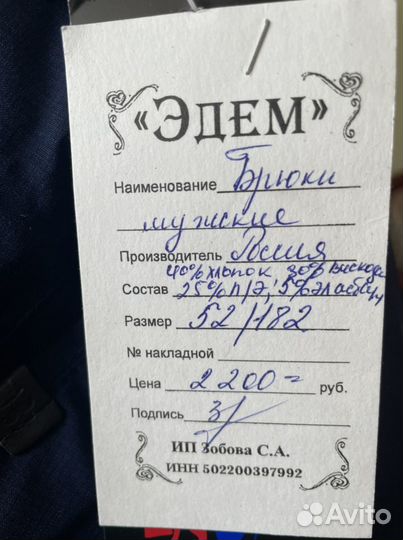 «ЭДЕМ»
Наименование Брюки
мужские
Производитель Россия
40% хлопок 30% вискоза
Состав 25% п/э, 5% эластан
Размер 52/182
№ накладной
Цена 2200= руб.
Подпись
ИП Зобова С.А.
ИНН 502200397992
Avito